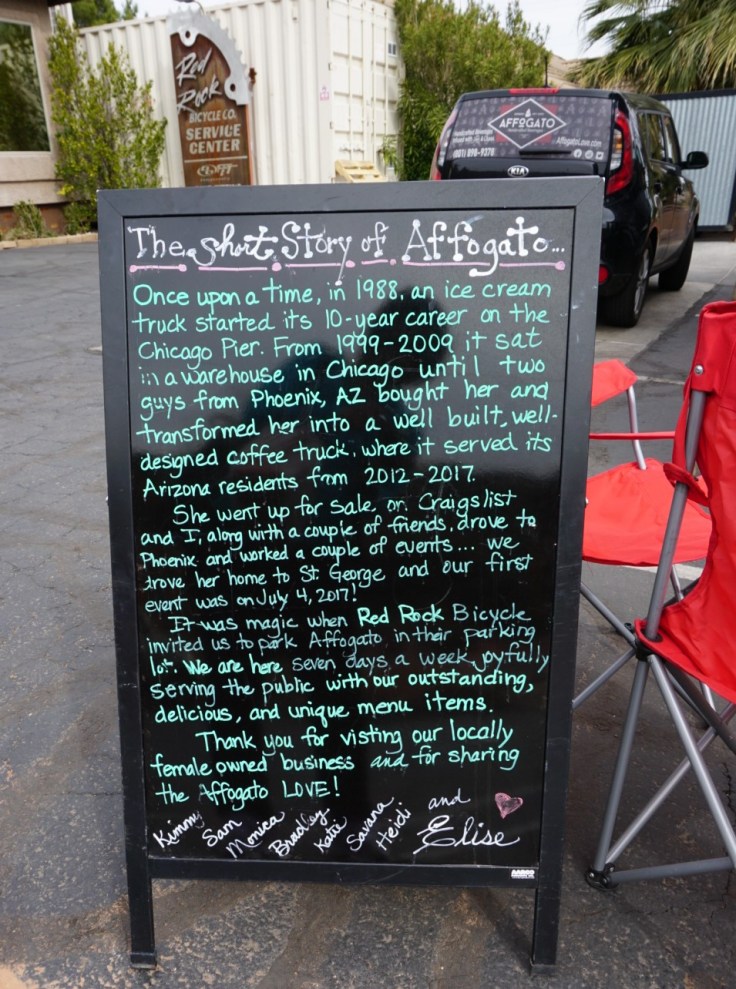 Red
Rock
BICYCLE CO.
SERVICE
CENTER
AFFOGATO
AffogatoLove.com
(801) 898-9370
KIA
The Short Story of Affogato...
Once upon a time, in 1988, an ice cream
truck started its 10-year career on the
Chicago Pier. From 1999-2009 it sat
in a warehouse in Chicago until two
guys from Phoenix, AZ bought her and
transformed her into a well built, well-
designed coffee truck, where it served its
Arizona residents from 2012-2017.
She went up for sale on Craigslist
and I, along with a couple of friends, drove to
Phoenix and worked a couple of events... we
drove her home to St. George and our first
event was on July 4, 2017!
It was magic when Red Rock Bicycle
invited us to park Affogato in their parking
lot. We are here seven days a week joyfully
serving the public with our outstanding,
delicious, and unique menu items.
Thank you for visting our locally
female owned business and for sharing
the Affogato LOVE!
Kimmy
Sam
Monica
Bradley
Katie
Savana
Heidi
and
Elise
AARCO